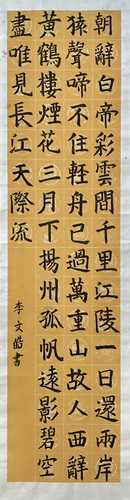 朝辭白帝彩雲間千里江陵一日還兩岸
猿聲啼不住輕舟已過萬重山故人西辭
黃鶴樓煙花三月下揚州孤帆遠影碧空
盡唯見長江天際流
李文皓書